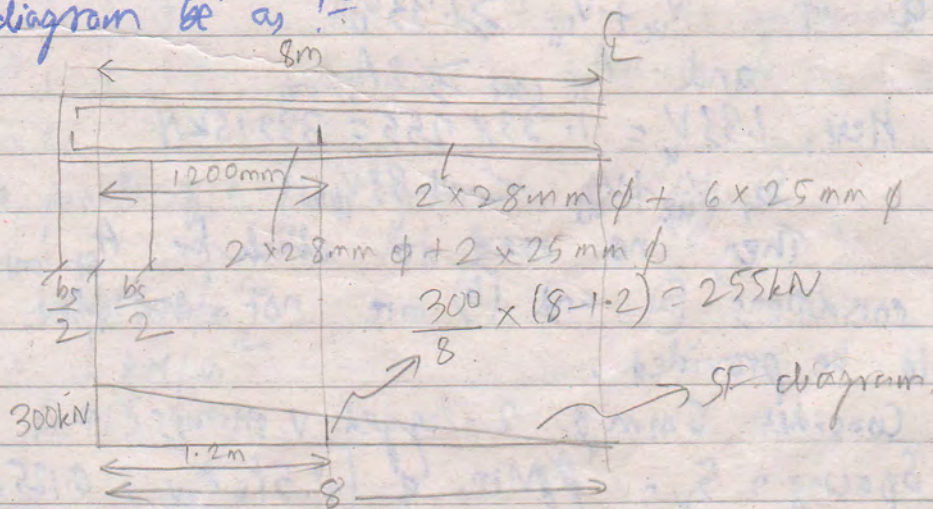 diagram be as :-
℄
8m
1200mm
2 × 28mm ϕ + 6 × 25 mm ϕ
2 × 28 mm ϕ + 2 × 25 mm ϕ
bs/2 bs/2
300/8 × (8-1.2) = 255kN
SF diagram
300kN
1.2m
8